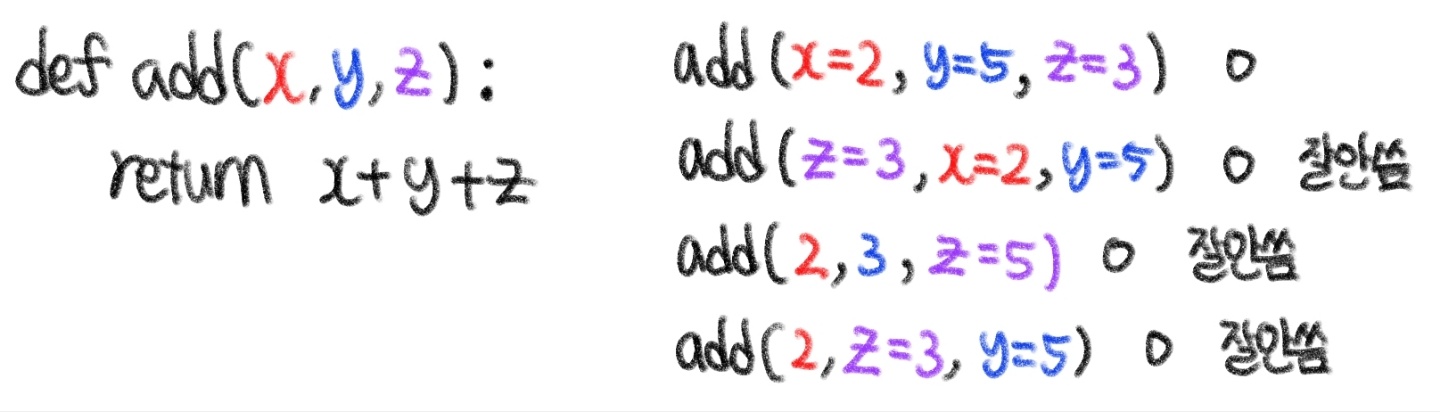 def add(x,y,z):
return x+y+z
add(x=2, y=5, z=3) O
add(z=3, x=2, y=5) O 잘안씀
add(2, 3, z=5) O 잘안씀
add(2, z=3, y=5) O 잘안씀